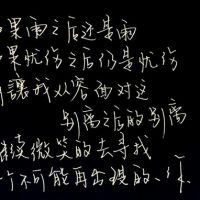 果雨之后还是雨
果忧伤之后仍是忧伤
讓我从容面对这
别离之后的别离
微笑的去寻找
个不可能再出现的、你